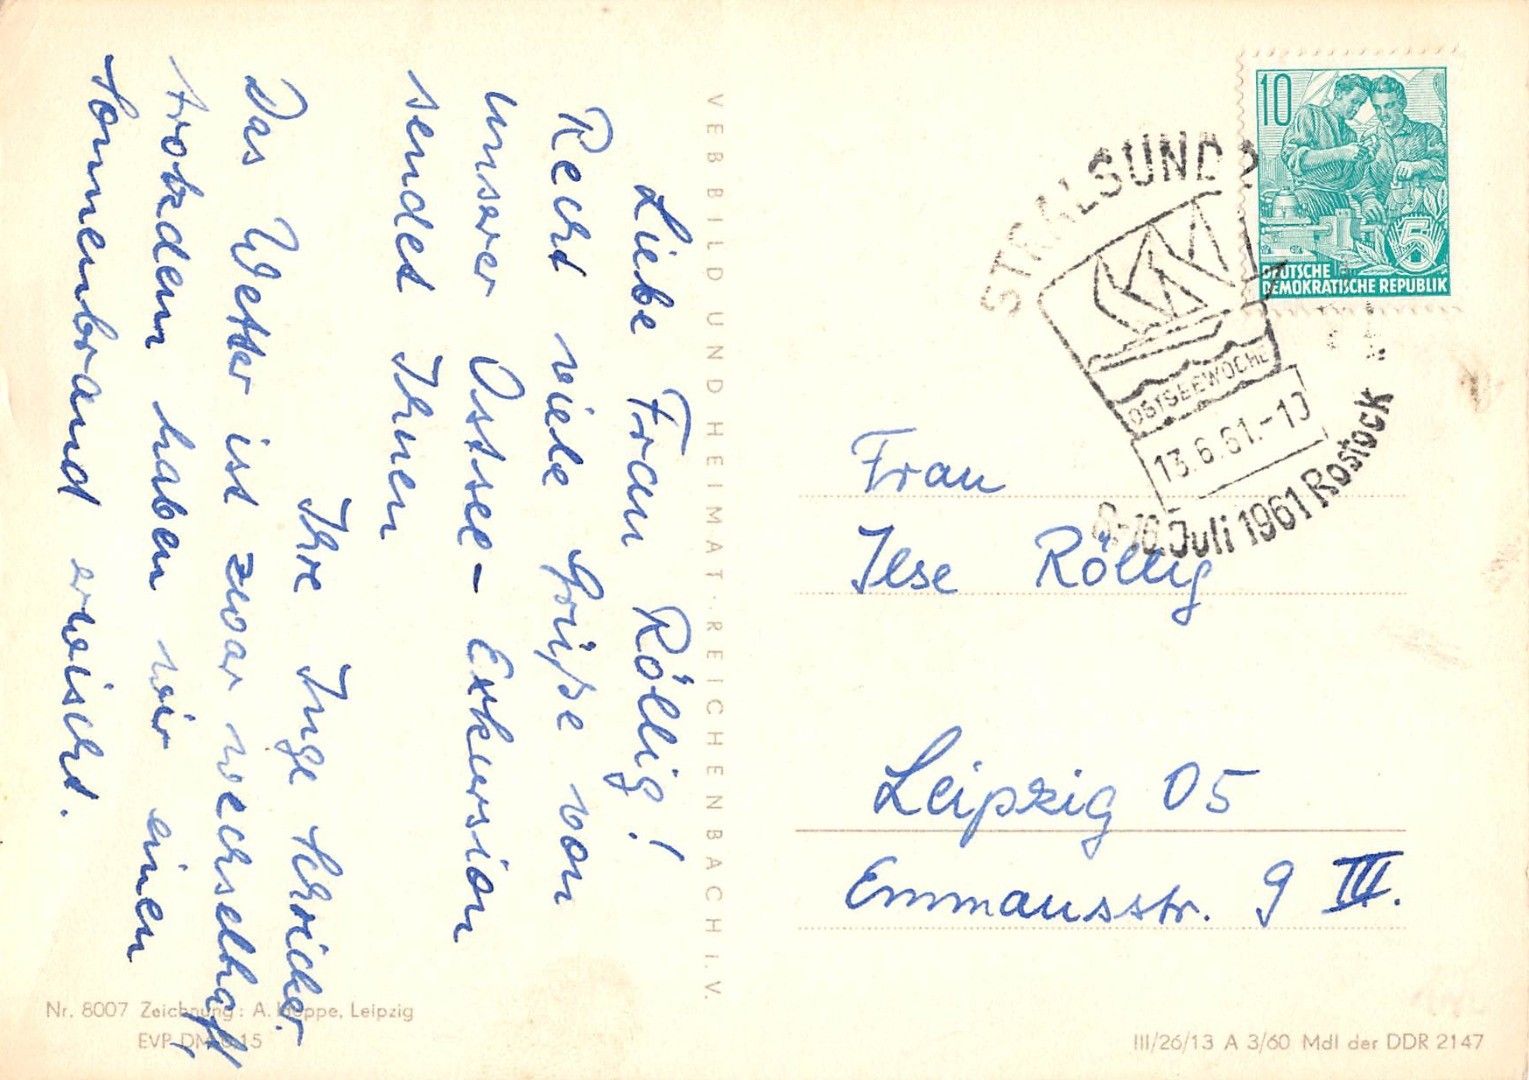 Liebe Frau Röllig!
Recht viele Grüße von
unserer Ostsee-Exkursion
sendet Ihnen
Ihre Inge Schricker.
Das Wetter ist zwar wechselhaft,
trotzdem haben wir einen
Sonnenbrand erwischt.
VEB BILD UND HEIMAT · REICHENBACH I. V.
10
DEUTSCHE
DEMOKRATISCHE REPUBLIK
5
STRALSUND 2
OSTSEEWOCHE
13.6.61.-10
8.-16. Juli 1961 Rostock
Frau
Ilse Röllig
Leipzig O5
Emmausstr. 9 III.
Nr. 8007 Zeichnung: A. Hoppe, Leipzig
EVP DM 0,15
III/26/13 A 3/60 MdI der DDR 2147